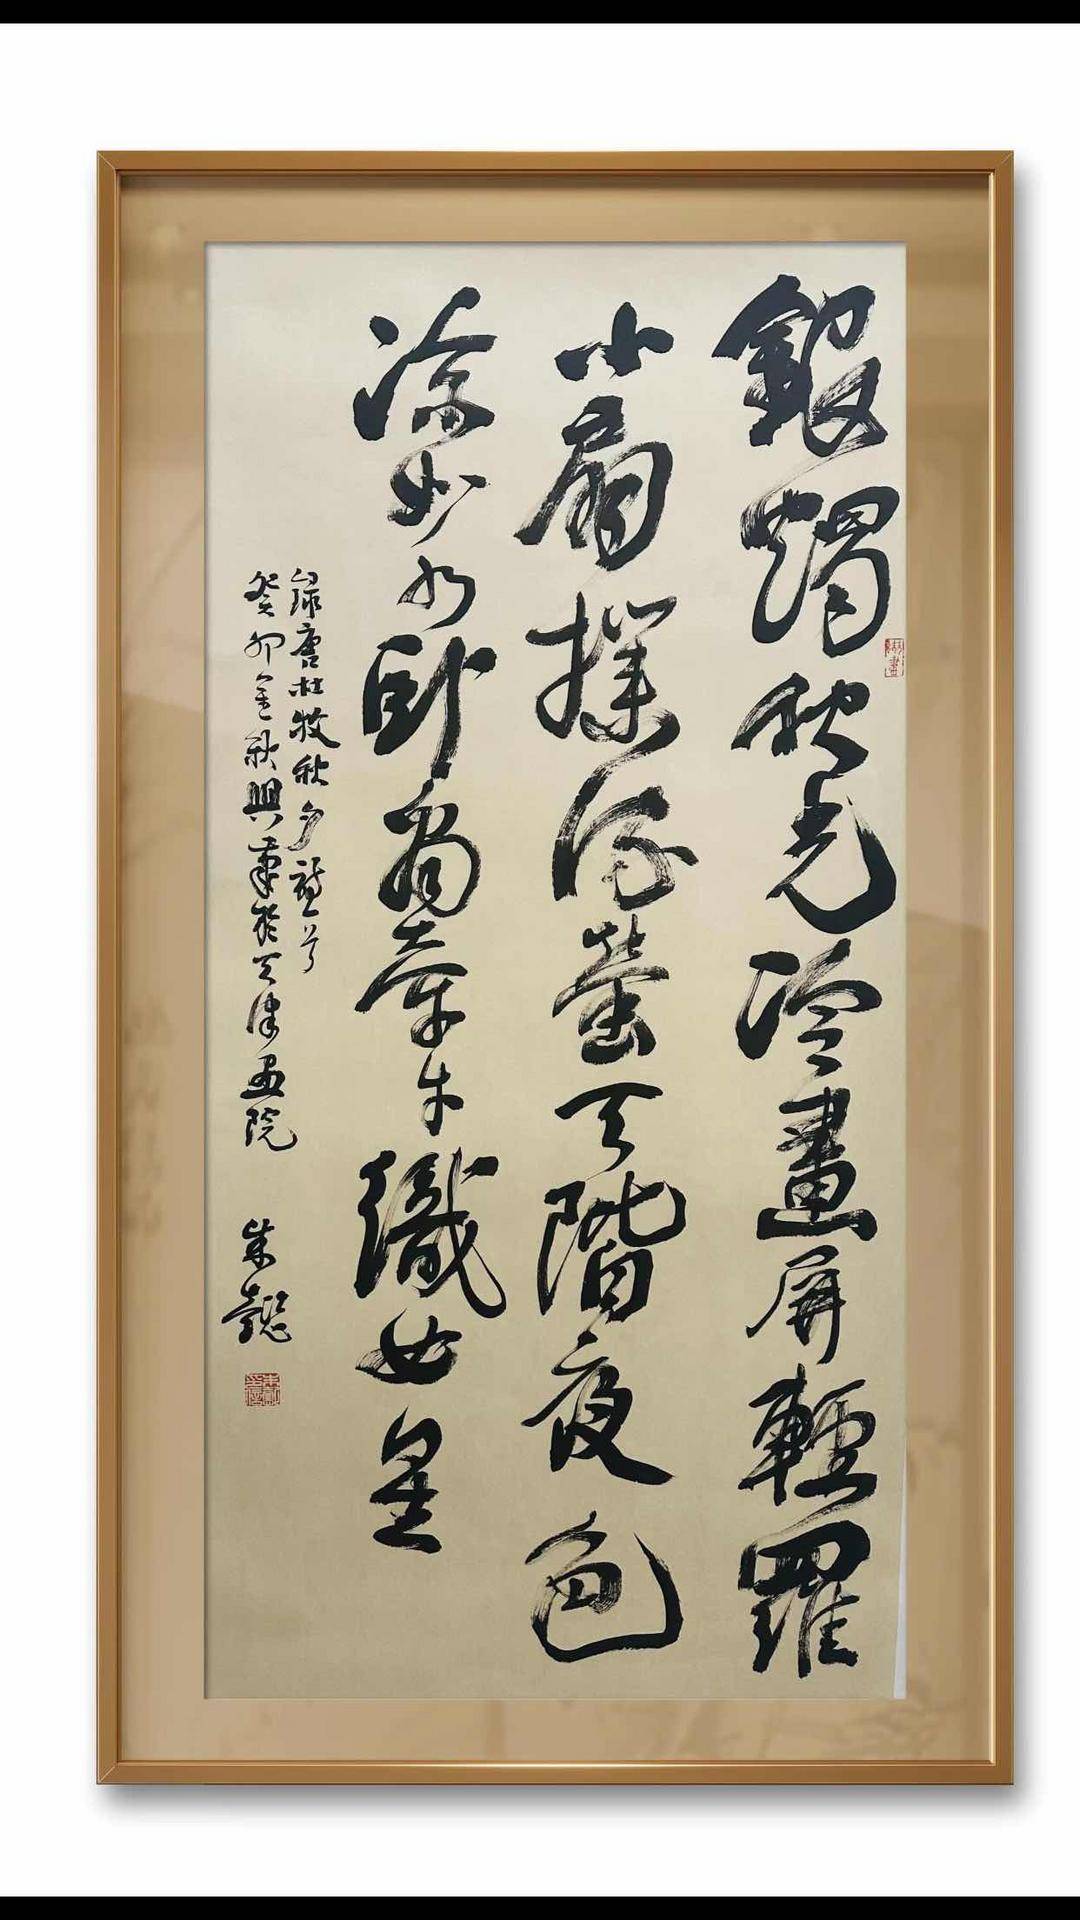 銀燭秋光冷畫屏輕羅
小扇撲流螢天階夜色
涼如水臥看牽牛織女星
錄唐杜牧秋夕詩一首
癸卯金秋興筆於天津畫院
朱懿